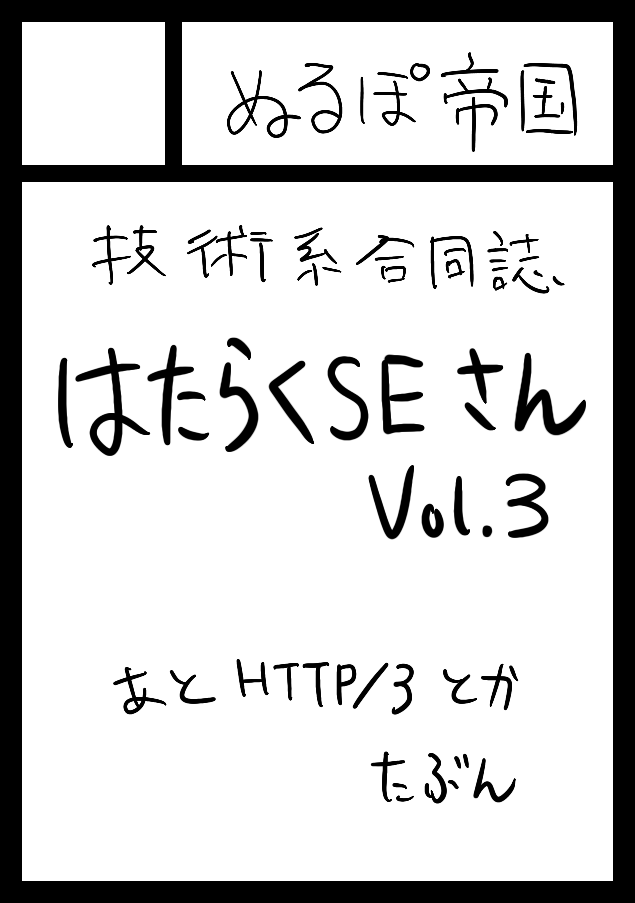 ぬるぽ帝国
技術系合同誌
はたらくSEさん
Vol.3
あとHTTP/3とか
たぶん